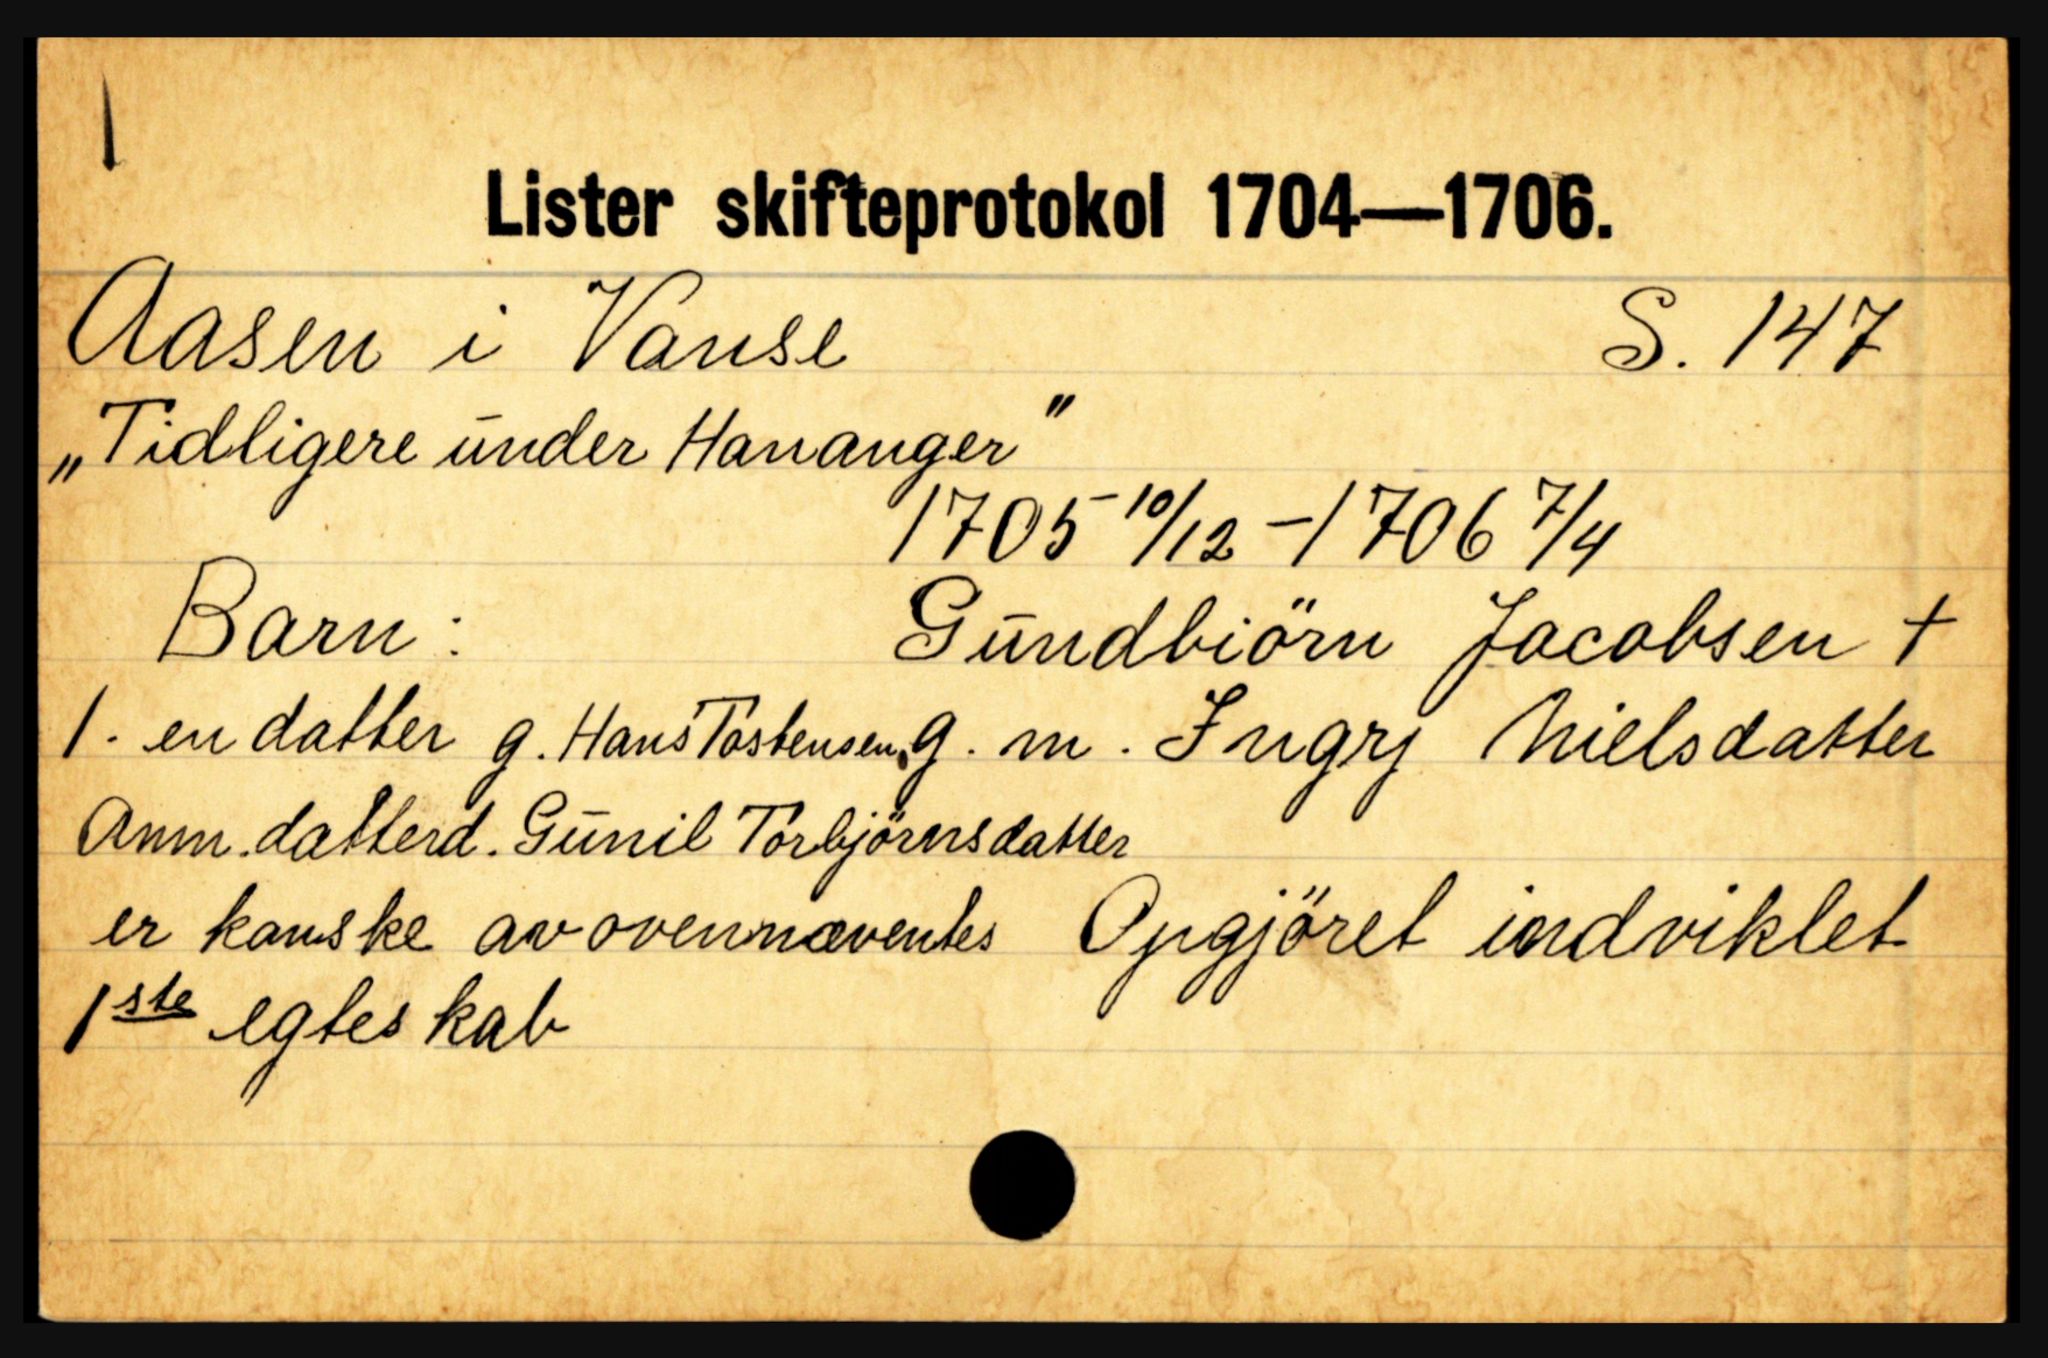 Lister skifteprotokol 1704—1706.
Aasen i Vanse S. 147
„Tidligere under Hananger"
1705 10/12 – 1706 7/4
Barn: Gundbiörn Jacobsen +
1. en datter g. Hans Tostensen, g. m. Ingrj Nielsdatter
Anm. datterd. Gunil Torbjörnsdatter
er kanske av ovennæventes Opgjöret indviklet
1ste egteskab